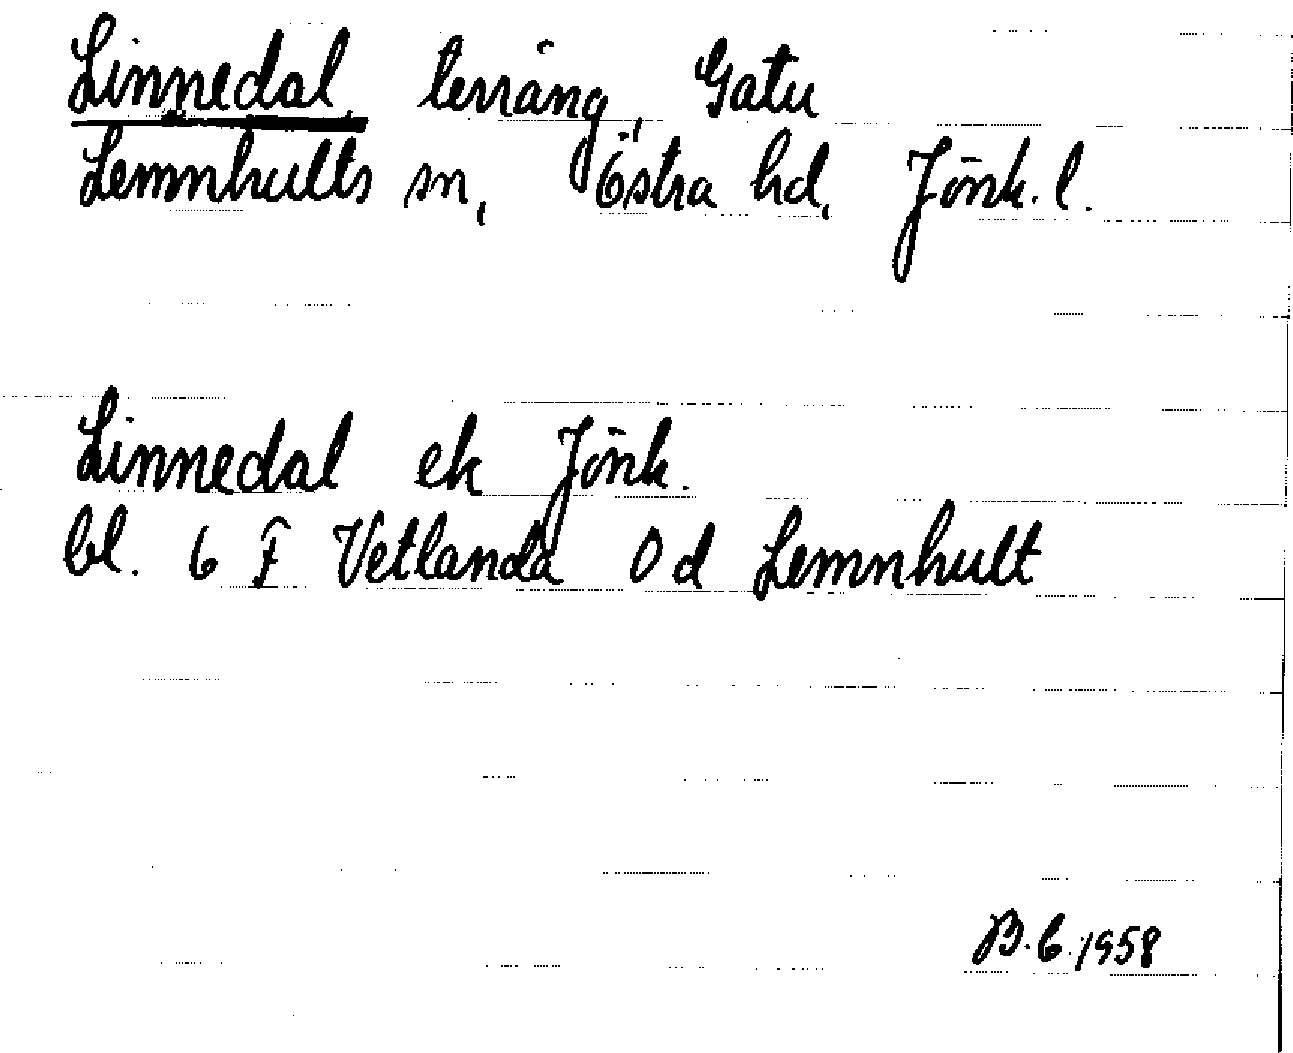 Linnedal, terräng, Gatu
Lemnhults sn, Östra hd, Jönk. l.
Linnedal ek Jönk.
bl. 6 F Vetlanda 0 d Lemnhult
B. G. 1958